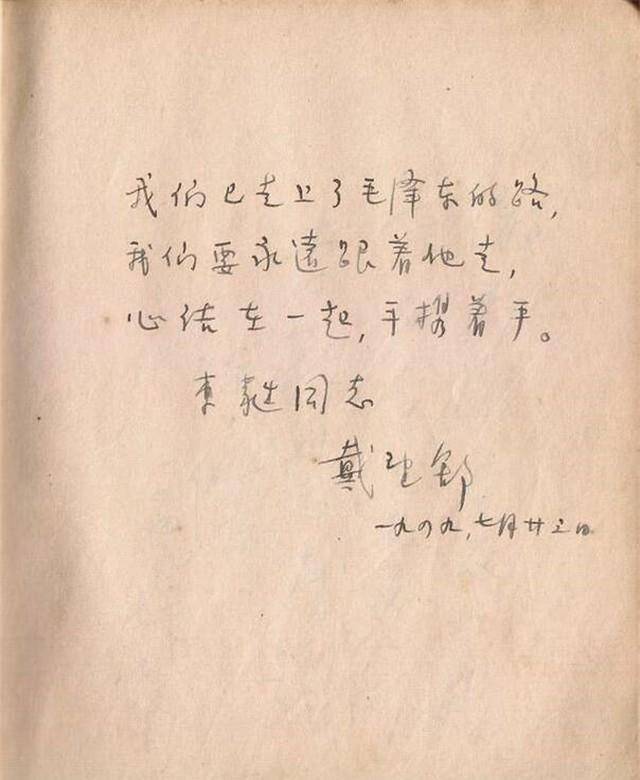 我们已走上了毛泽东的路,
我们要永遠跟着他走,
心结在一起,手携着手。
同志
戴望舒
一九四九,七月廿三日